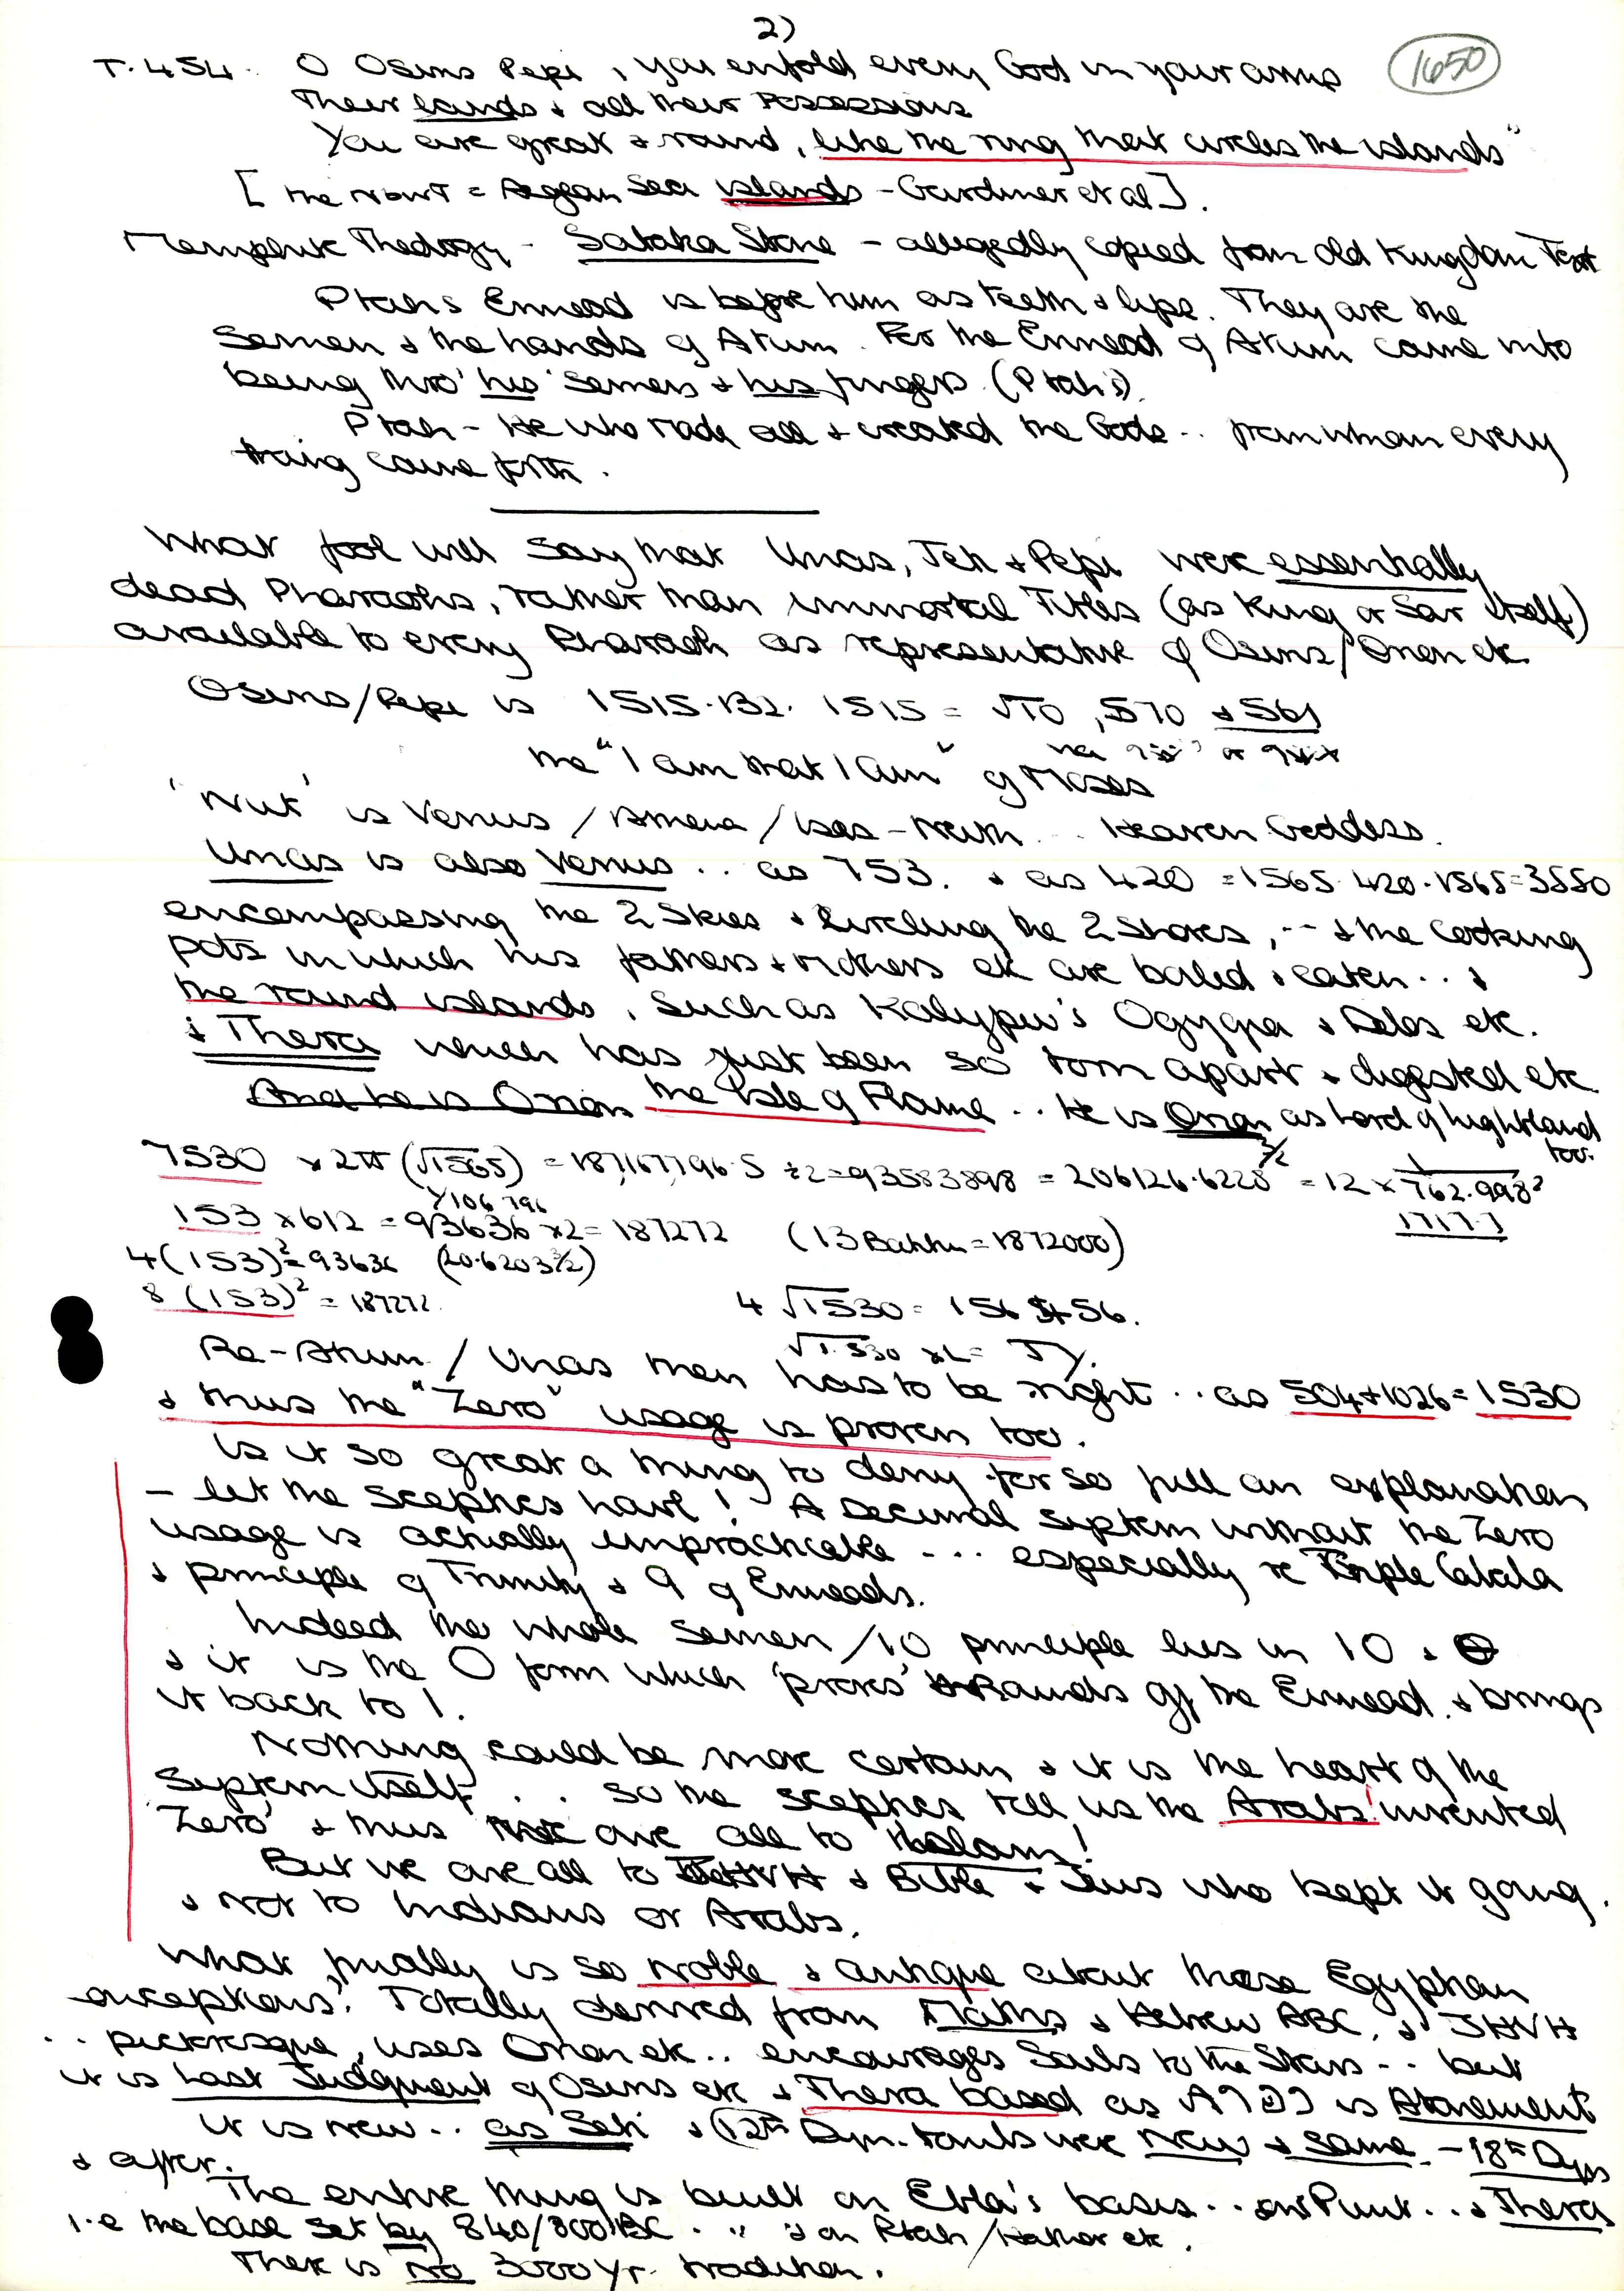 2)
1650
T.454. O Osiris Pepi, you enfold every God in your arms
Their lands & all their Possessions
You are great & round, like the ring that circles the islands"
[the Nbwt = Aegean Sea islands - Gardiner et al].
Memphite Theology - Sabaka Stone - allegedly copied from Old Kingdom Text
Ptah's Ennead is before him as teeth & lips. They are the
Semen & the hands of Atum. For the Ennead of Atum came into
being thro' his semen & his fingers (Ptah's).
Ptah - He who made all & created the Gods .. from whom every
thing came forth.
What fool will say that Unas, Teti & Pepi were essentially
dead Pharaohs, rather than immortal Titles (as King or Sar itself)
available to every Pharaoh as representative of Osiris/Orion etc.
Osiris/Pepi is 1515.132. 1515 = √10, 570 & 561
the "I am that I am" of Moses
'Nut' is Venus / / Isis - Neith .. Heaven Goddess.
Unas is also Venus .. as 753. & as 420 = 1565 420.1565=3550
encompassing the 2 Skies & circling the 2 Shores, -- & the Cooking
pots in which his fathers & mothers etc are boiled & eaten .. &
the round islands, such as Kalypso's Ogygia & Delos etc.
& Thera which has just been so torn apart & digested etc
And he is Orion the Isle of Flame .. He is Orion as Lord of highland
too.
7530 x 2π (√1565) = 187,167,796.5 ÷2=93583898 = 206126.6228 3/2 = 12 x 1/762.998²
1/106796
1717.7
153 x 612 = 93636 x2 = 187272 (13 Baktun = 1872000)
4(153)²=93636 (20.6203 3/2)
8(153)² = 187272.
4 √1530 = 156.456.
√1.530 x L = JY.
Re-Atum / Unas then has to be right .. as 504+1026=1530
& thus the "Zero" usage is proven too.
Is it so great a thing to deny for so full an explanation
- let the sceptics howl! A Decimal system without the Zero
usage is actually impracticable ... especially re Triple Cabala
& principle of Trinity & 9 of Enneads.
Indeed the whole semen /10 principle lies in 10 & 0
& it is the O form which 'proves' Rounds off the Ennead. & brings
it back to 1.
Nothing could be more certain & it is the heart of the
System itself .. so the sceptics tell us the Arabs! invented
'Zero' & thus we owe all to Islam!
But we owe all to JHVH & Bible & Jews who kept it going.
& not to Indians or Arabs.
What finally is so noble & antique about these Egyptian
conceptions? Totally derived from Maths & Hebrew ABC, & JHVH
.. picturesque, uses Orion etc .. encourages Souls to the Stars -- but
it is Last Judgment of Osiris etc & Thera based as is Atonement
it is new .. as Seti & (12th Dyn. tombs were new & same - 18th Dyn
& after.
The entire thing is built on Ebla's basis .. on Punt .. & Thera
i.e the base set by 840/800 BC . .. & on Ptah/Hathor etc.
There is no 3000 Yr. tradition.